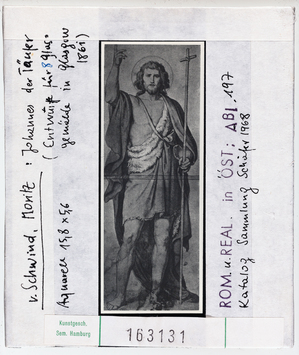 v. Schwind, Moritz : Johannes der Täufer
( Entwürfe für 8 glas=
gemälde in Glasgow
1861)
Aquarell 15,8 x 5,6
ROM. u. REAL. in ÖST; ABl. 197
Katalog Sammlung Schäfer 1968
Kunstgesch.
Sem. Hamburg
163131